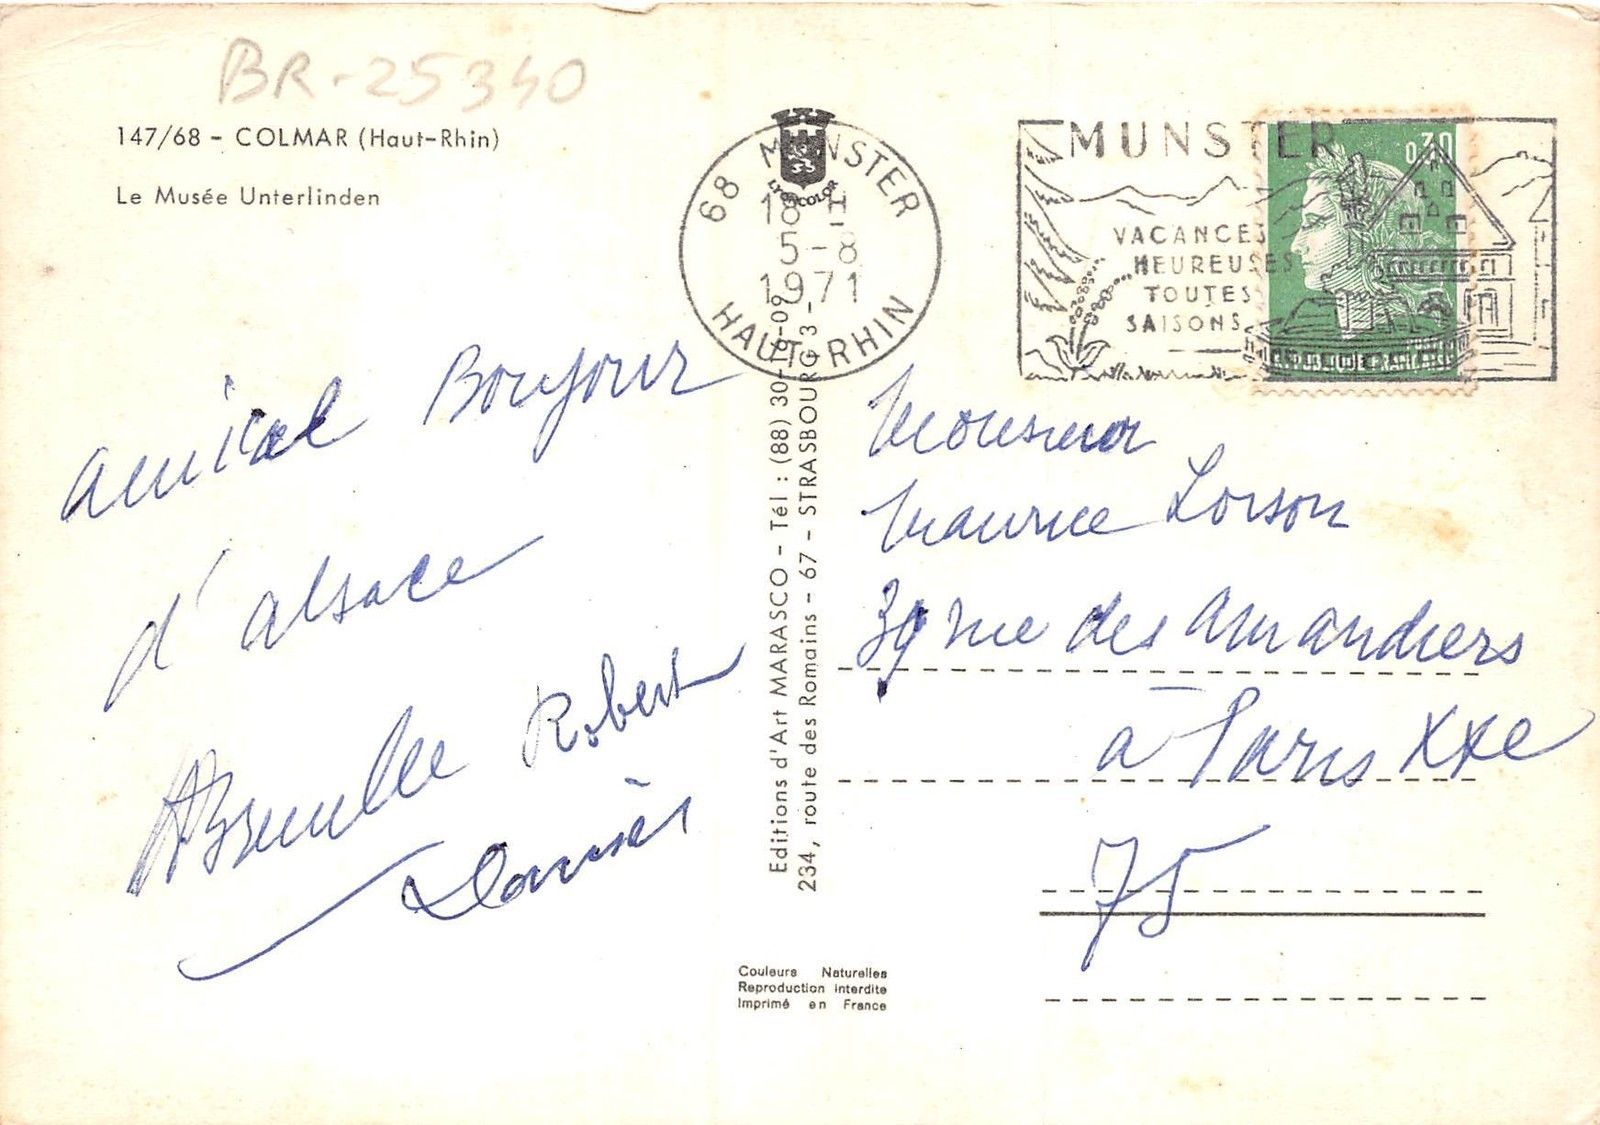 BR-25340
147/68 - COLMAR (Haut-Rhin)
Le Musée Unterlinden
Amical Bonjour
d'alsace
Robert
68 MUNSTER
18 H
5-8
1971
HAUT-RHIN
LYONCOLOR
MUNSTER
VACANCES
HEUREUSES
TOUTES
SAISONS
0,30
REPUBLIQUE FRANÇAISE
Editions d'Art MARASCO - Tél : (88) 30-19-09
234, route des Romains - 67 - STRASBOURG 3 -
Monsieur
Maurice Lorson
39 rue des Amandiers
à Paris XXe
75
Couleurs Naturelles
Reproduction interdite
Imprimé en France